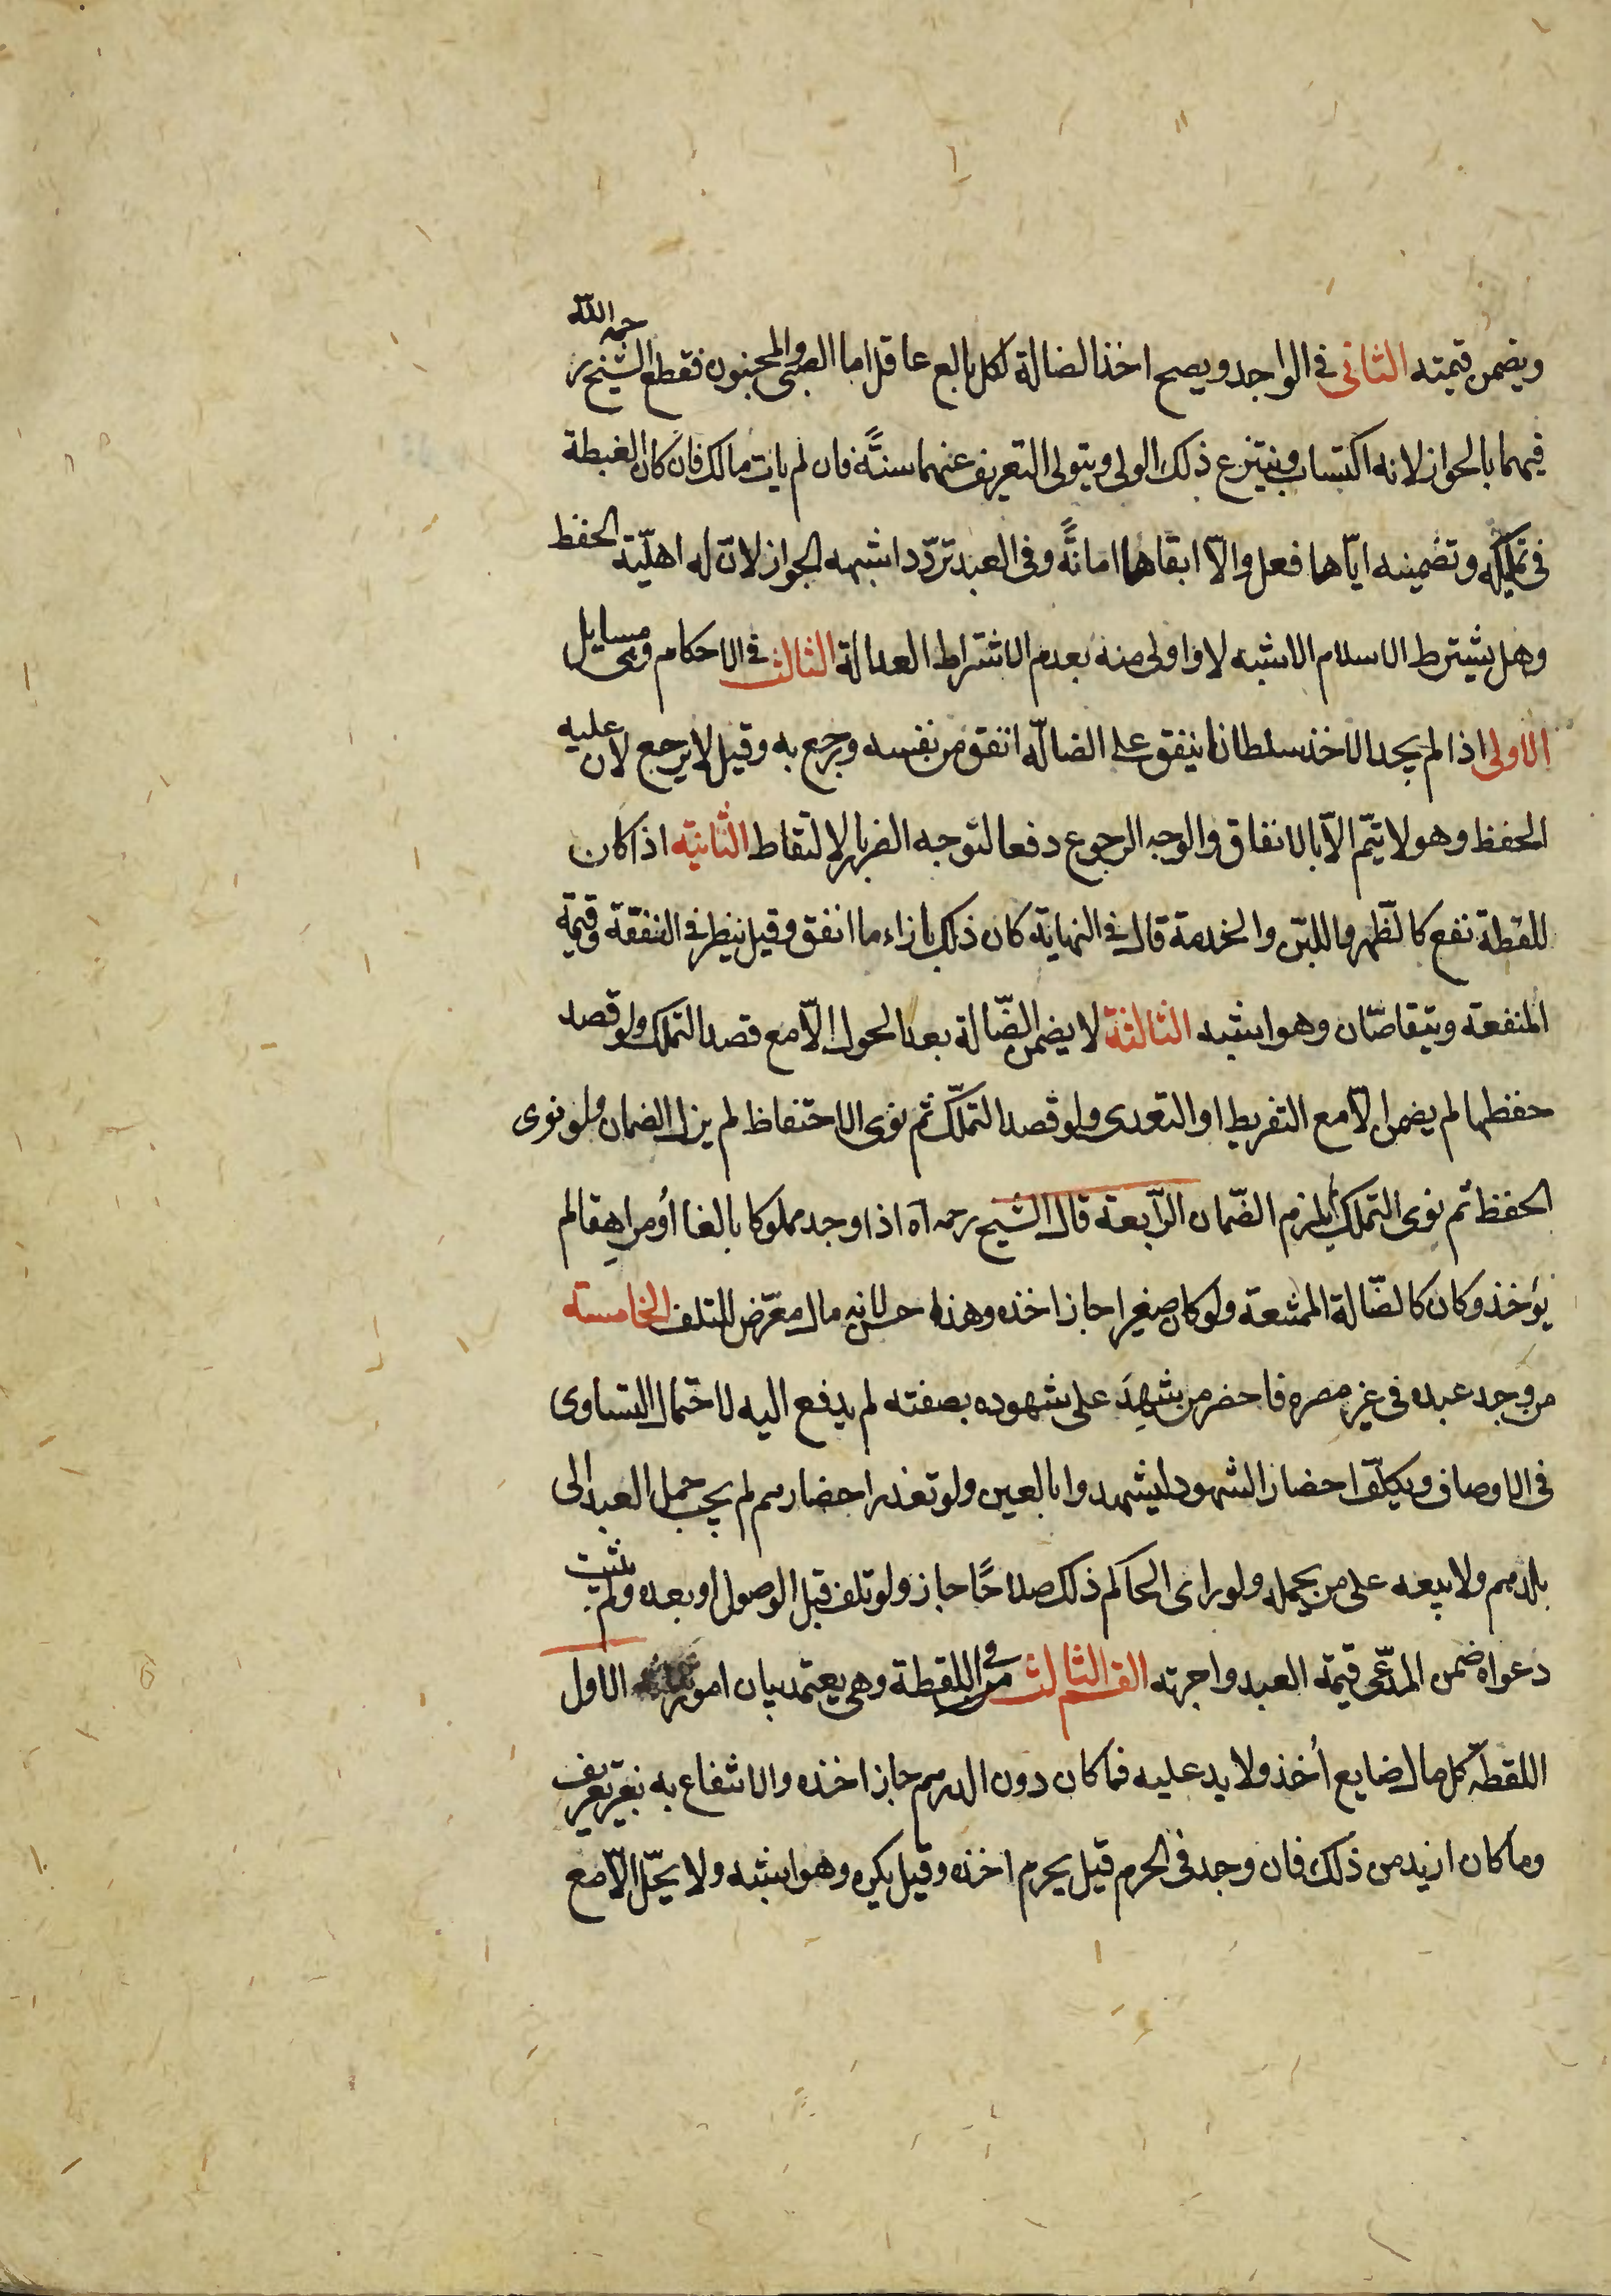 ويضمن قيمته الثانى فى الواجد ويصح اخذ الضالة لكل بالع عاقل اما الصبى والمجنون فقطع الشيخ رحمه الله
فيهما بالجواز لانه اكتساب وينتزع ذلك الولى ويتولى التعريف عنهما سنةً فان لم يات مالك فان كان الغبطة
فى تمليكه وتضمينه ايّاها فعل والّا ابقاها امانةً وفى العبد تردّد اشبهه الجواز لانّ له اهليّة الحفظ
وهل يشترط الاسلام الاشبه لا واولى منه بعدم الاشتراط العدالة الثالث فى الاحكام وهى مسايل
الاولى اذا لم يجد الاخذ سلطانا ينفق على الضالّة انفق من نفسه ورجع به وقيل لا يرجع لان عليه
الحفظ وهو لا يتّم الّا بالانفاق والوجه الرجوع دفعا لتوجه الضرر بالالتقاط الثانية اذا كان
للقطة نفع كالظّهر واللبن والخدمة قال فى النهاية كان ذلك بازاء ما انفق وقيل ينظر فى النفقة وقيمة
المنفعة ويتقاصّان وهو اشبه الثالثة لا يضمن الضّالة بعد الحول الّا مع قصد التملك ولو قصد
حفظها لم يضمن الّا مع التفريط او التعدى ولو قصد التملّك ثم نوى الاحتفاظ لم يزل الضمان ولو نوى
الحفظ ثم نوى التملك لزم الضّمان الرّابعة قال الشيخ رحمه اه اذا وجد مملوكا بالغا أو مراهِقا لم
يؤخذ وكان كالضّالة الممتنعة ولو كان صغيرا جاز اخذه وهذا حسن لانه مال معرّض للتلف الخامسة
من وجد عبده فى غير مصره فاحضر من يشهدَ على شهوده بصفته لم يدفع اليه لاحتمال التساوى
فى الاوصاف ويكلّف احضار الشهود ليشهدوا بالعين ولو تعذر احضارهم لم يجب حمل العبد الى
بلدهم ولا بيعه على من يحمله ولو راى الحاكم ذلك صلاحًا جاز ولو تلف قبل الوصول او بعده ولم يثبت
دعواه ضمن المدّعى قيمة العبد واجرته القسم الثالث فى اللقطة وهى يعتمد بيان امور الاول
اللقطة كل مال ضايع أُخذ ولا يد عليه فما كان دون الدرهم جاز اخذه والانتفاع به بغير تعريف
وما كان ازيد من ذلك فان وجد فى الحرم قيل يحرم اخذه وقيل يكره وهو اشبه ولا يحّل الّا مع